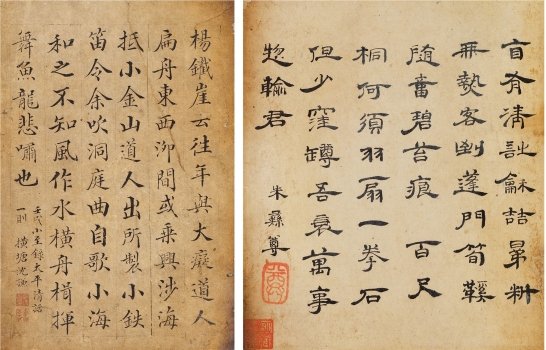 楊鐵崖云往年與大癡道人
扁舟東西泖間或乘興涉海
抵小金山道人出所製小鉄
笛令余吹洞庭曲自歌小海
和之不知風作水橫舟楫揮
舞魚龍悲嘯也
壬戌小至錄太平清話
一則 橫塘沈
有清
客到蓬門筍鞵
隨碧苔痕 百尺
桐何須羽扇一拳石
但少窪罇吾衰萬事
惣輸君
朱彝尊